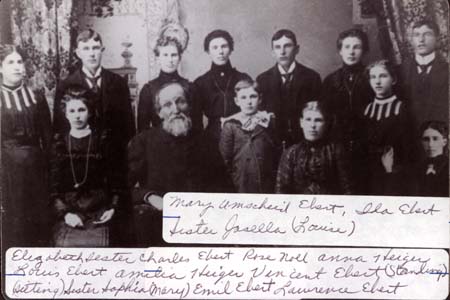 Mary Umscheid Ebert, Ida Ebert
Sister Josella (Louise)
Elizabeth Sister Charles Ebert Rose Noll Anna Heiger
Louis Ebert Amelia Heiger Vincent Ebert (Standing)
(sitting) Sister Sophia (Mary) Emil Ebert Lawrence Ebert